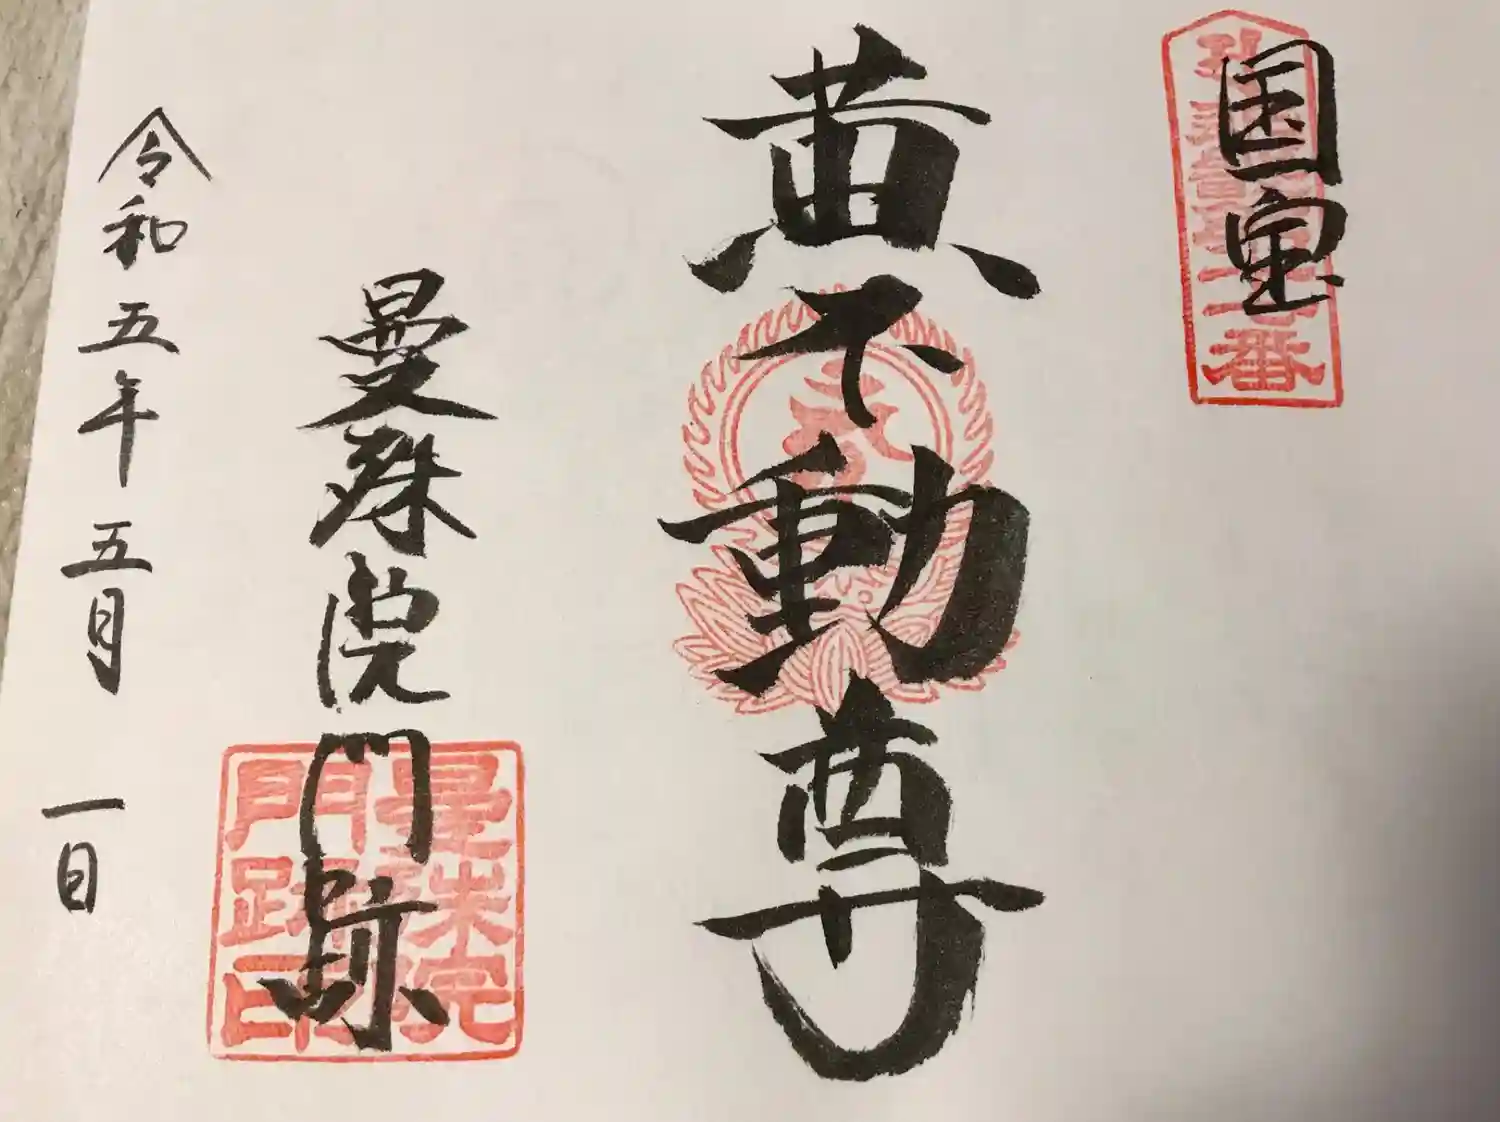 国宝
番
黄不動尊
曼殊院門跡
曼殊院
門跡印
令和五年五月一日